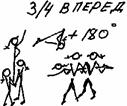 3/4 ВПЕРЕД
+180°